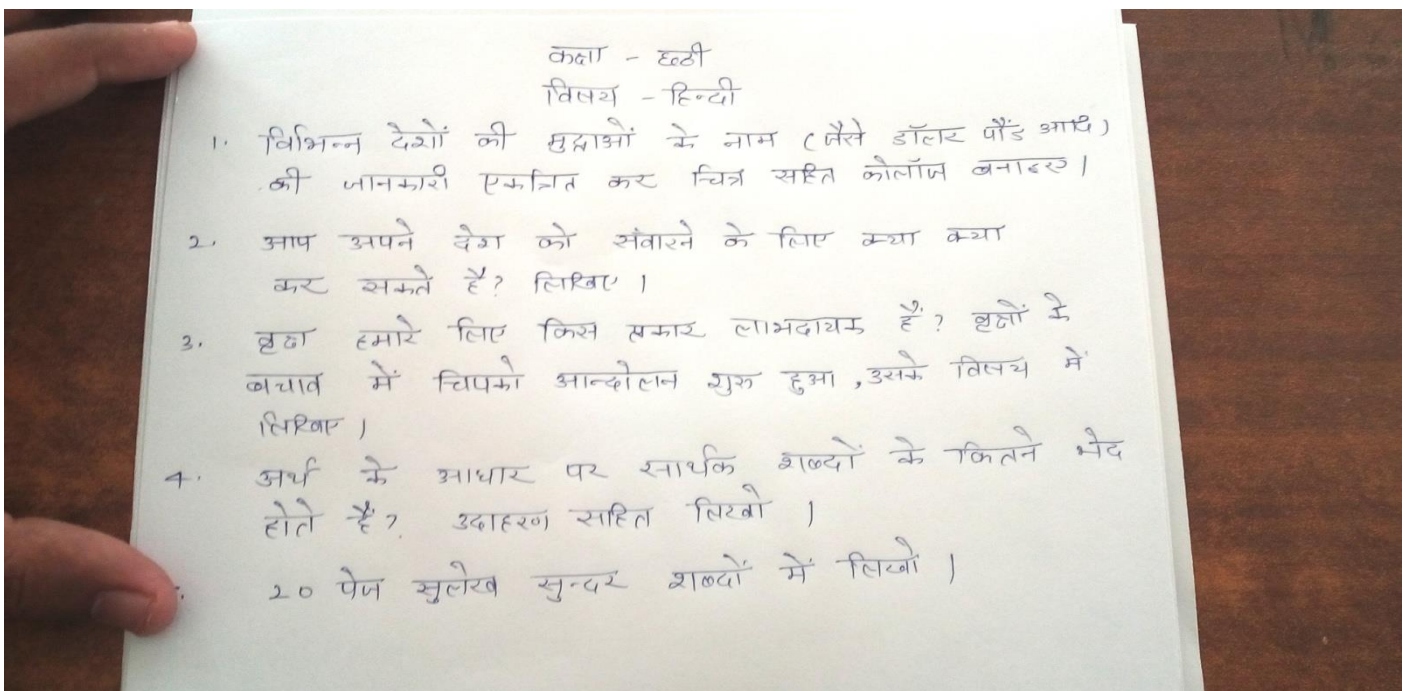 कक्षा - छठी
विषय - हिन्दी
1. विभिन्न देशों की मुद्राओं के नाम (जैसे डॉलर पौंड आदि)
की जानकारी एकत्रित कर चित्र सहित कोलॉज बनाइए।
2. आप अपने देश को संवारने के लिए क्या क्या
कर सकते है? लिखिए।
3. वृक्ष हमारे लिए किस प्रकार लाभदायक हैं? वृक्षों के
बचाव में चिपको आन्दोलन शुरु हुआ, उसके विषय में
लिखिए।
4. अर्थ के आधार पर सार्थक शब्दों के कितने भेद
होते हैं? उदाहरण सहित लिखो।
20 पेज सुलेख सुन्दर शब्दों में लिखो।